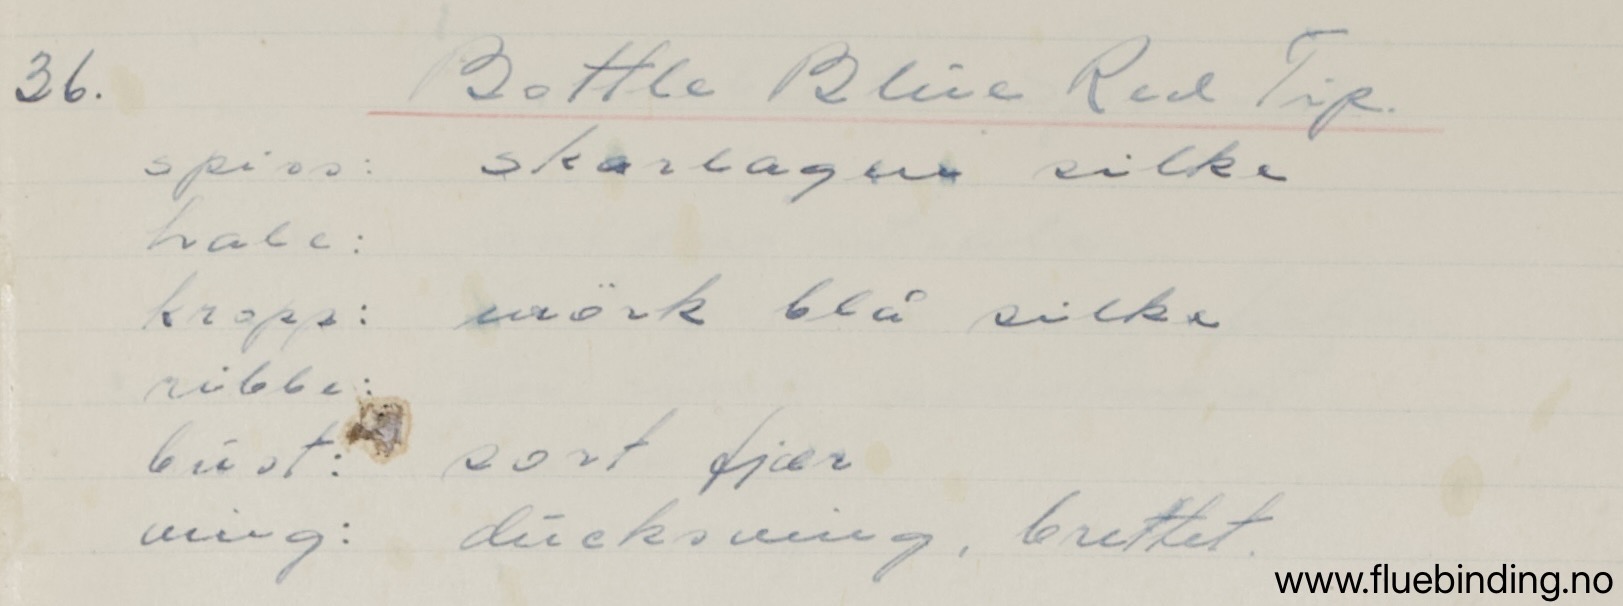 36. Bottle Blue Red Tip.
spiss: skarlagen silke
hale:
kropp: mörk blå silke
ribbe:
büst: sort fjær
ving: dücksving, brettet.
www.fluebinding.no